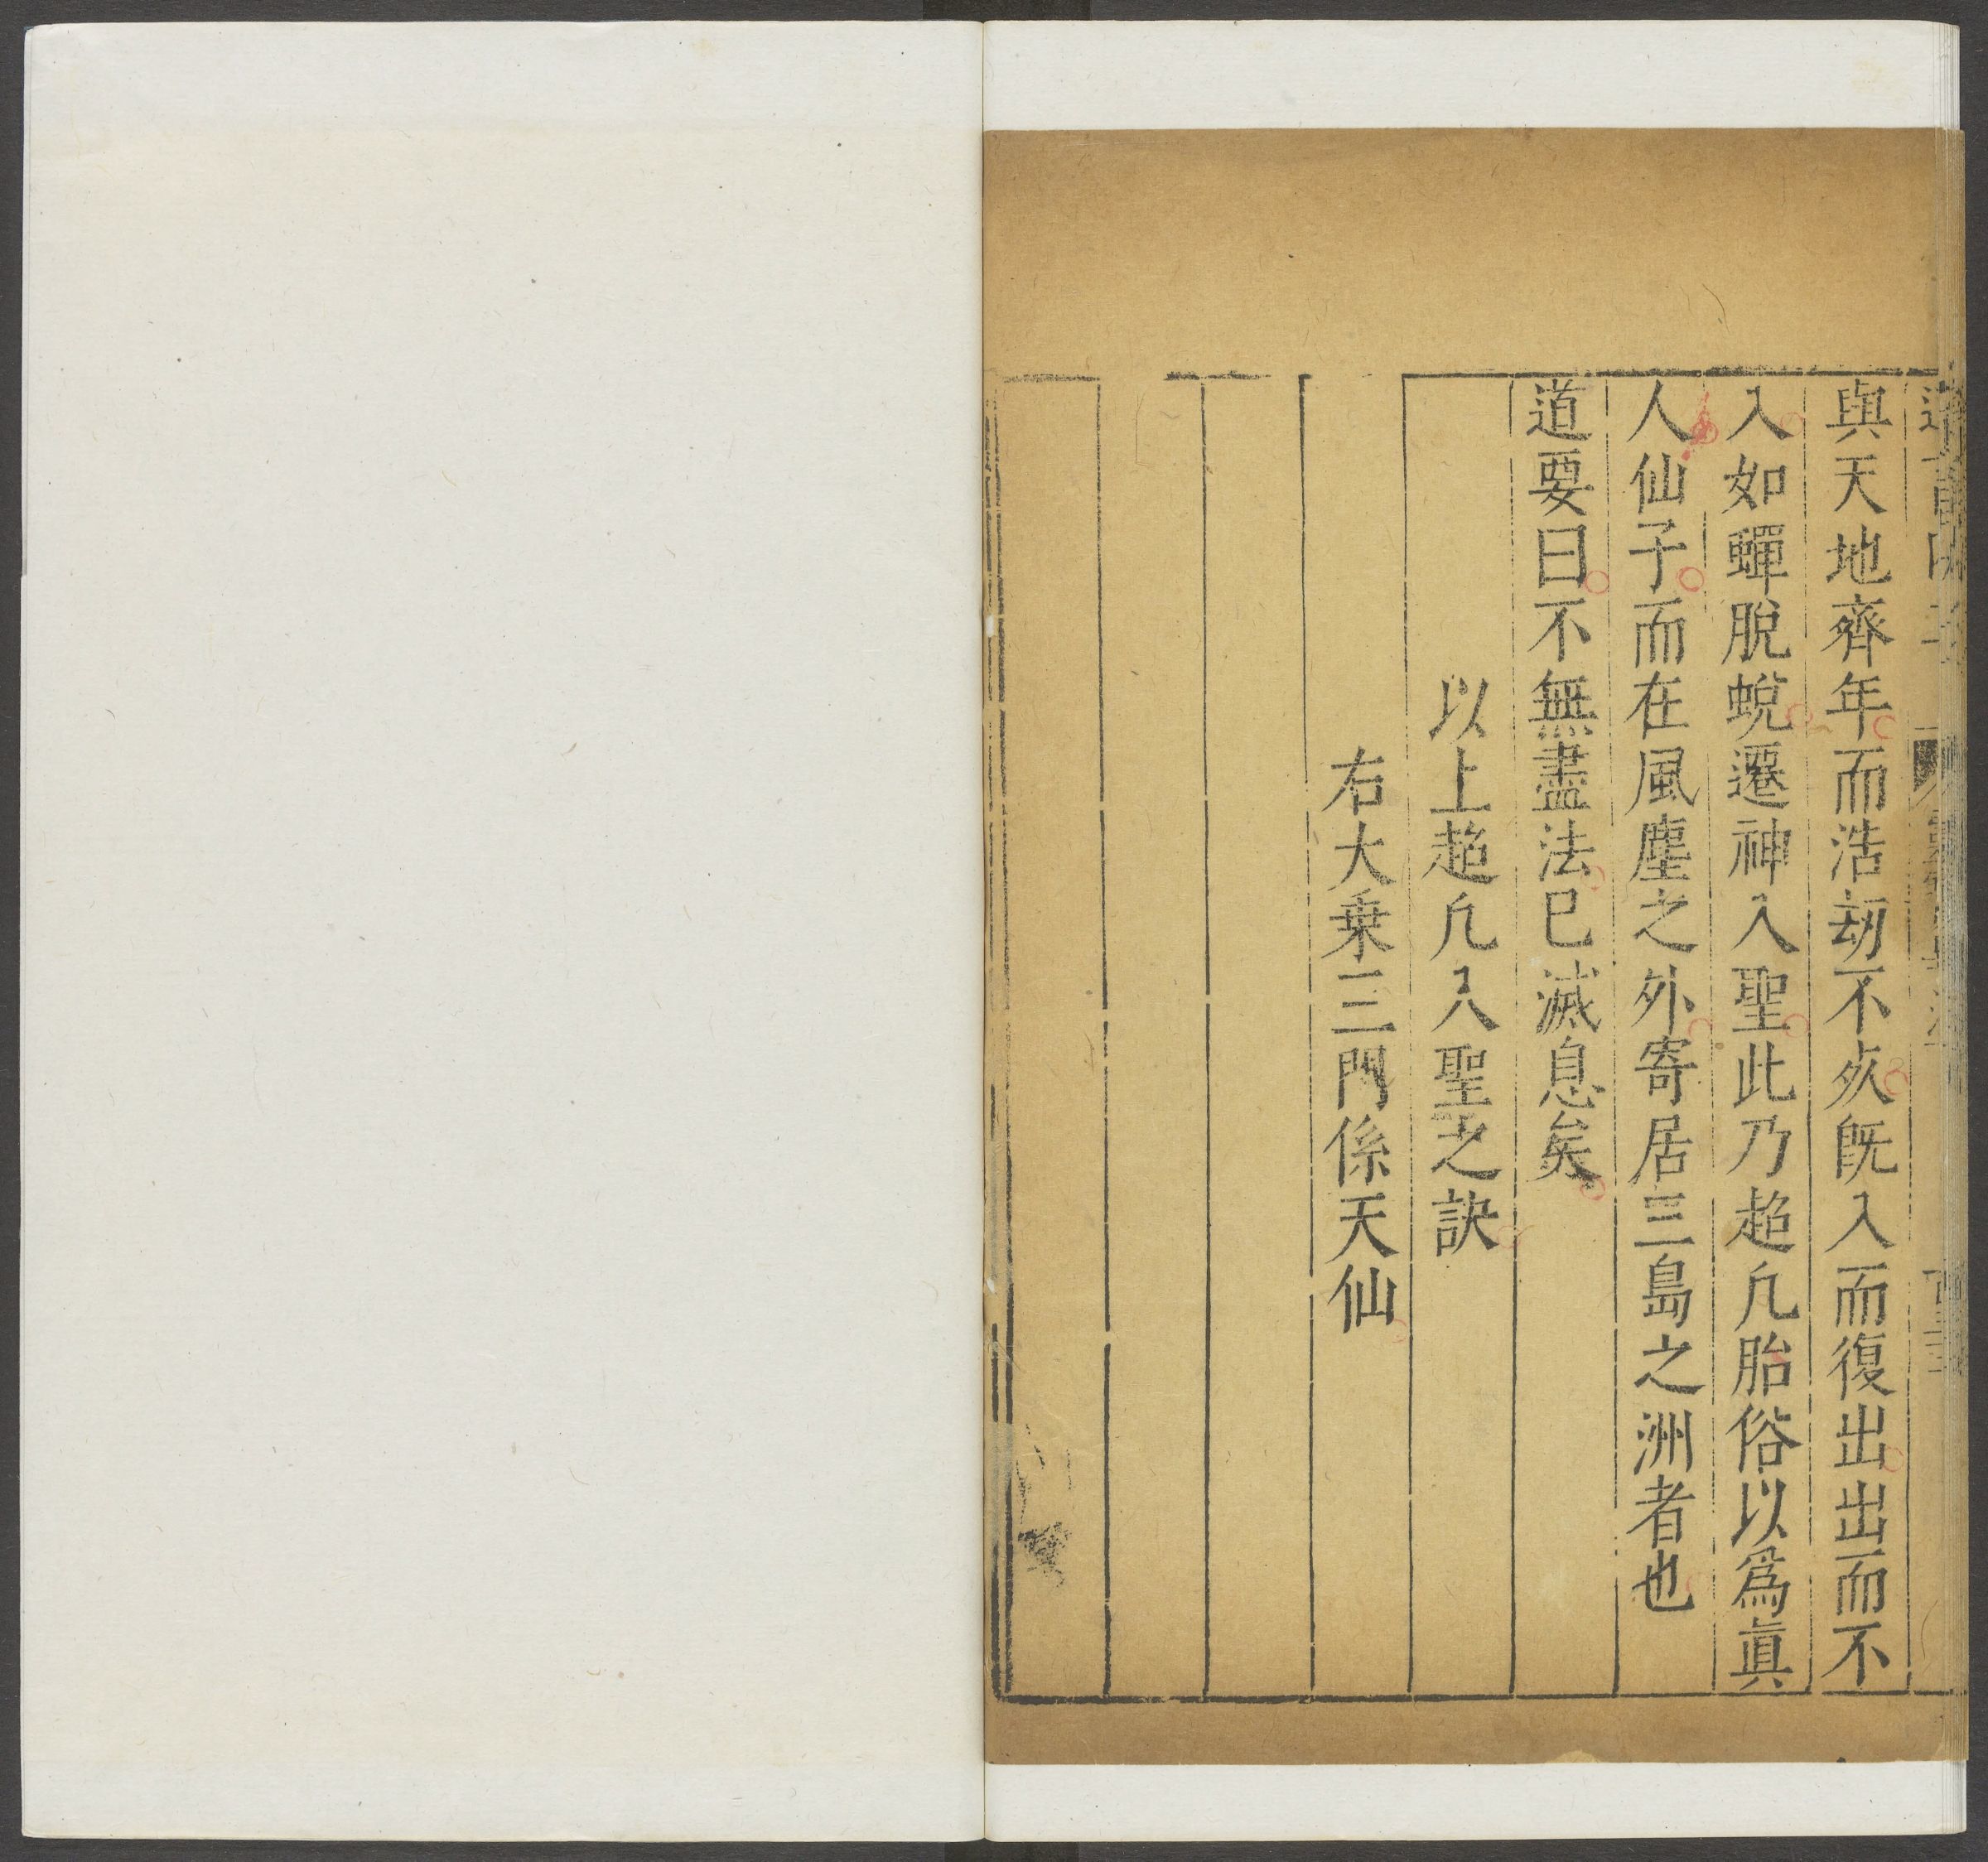 與天地齊年而浩劫不死旣入而復出出而不
入如蟬脫蛻遷神入聖此乃超凡胎俗以爲眞
人仙子而在風塵之外寄居三島之洲者也
道要曰不無盡法已滅息矣
以上超凡入聖之訣
右大乗三門係天仙